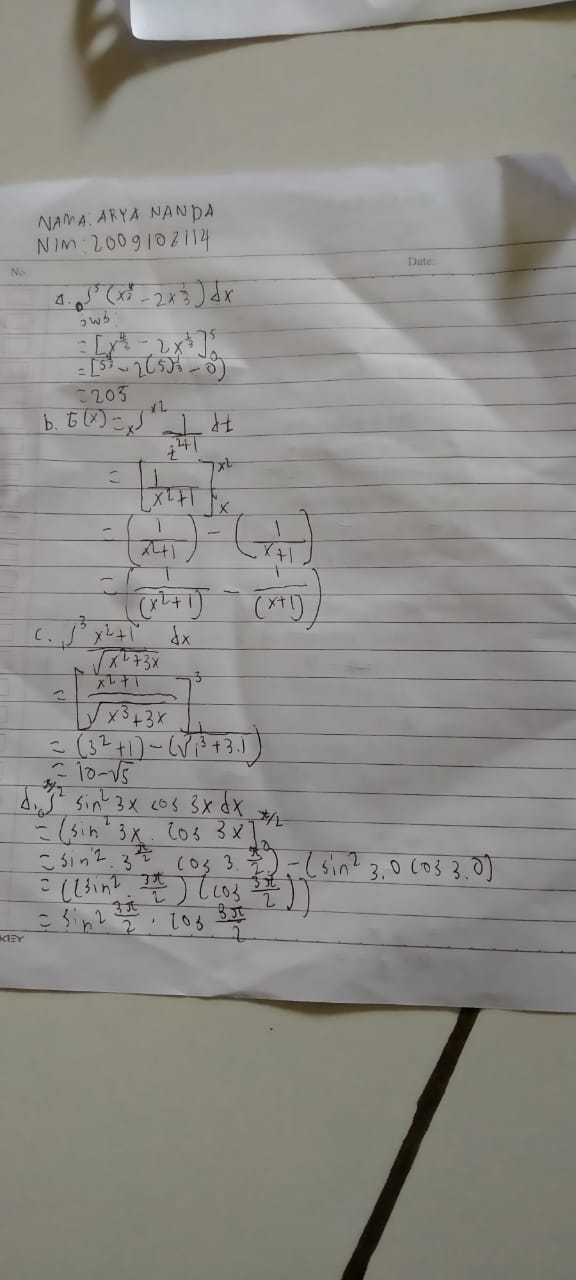 NAMA: ARYA NANDA
NIM: 2009106114
No.: Date:
a. ₀∫⁵ (x^(4/3) - 2x^(1/3)) dx
Jwb:
= [x^(4/3) - 2x^(1/3)]₀⁵
= [5^(4/3) - 2(5)^(1/3) - 0)
= 205
b. F(x) = ₓ∫^(x2) 1/(t²+1) dt
= [1/(x²+1)]ₓ^(x2)
= (1/(x²+1)) - (1/(x+1))
= (1/(x²+1) - 1/(x+1))
c. ₁∫³ (x²+1)/√(x²+3x) dx
= [(x²+1)/√(x³+3x)]₁³
= (3²+1) - (√1³+3.1)
= 10-√5
d. ₀∫^(π/2) sin² 3x cos 3x dx
= (sin² 3x. cos 3x]₀^(π/2)
= sin². 3 π/2 cos 3. π/2) - (sin² 3.0 cos 3.0)
= ((sin² 3π/2) (cos 3π/2))
= sin² 3π/2 . cos 3π/2
KIEY